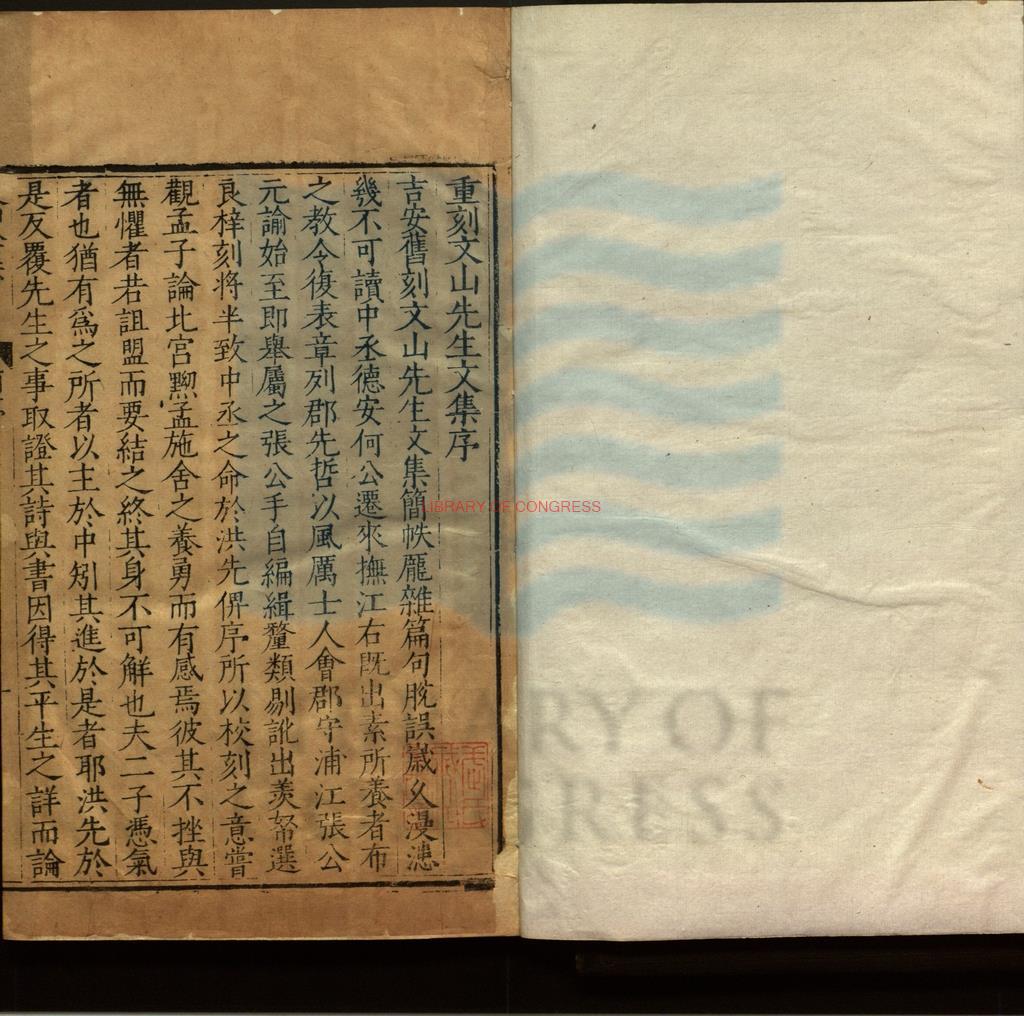 重刻文山先生文集序
吉安舊刻文山先生文集簡帙厖雜篇句脫誤歲久漫漶
幾不可讀中丞德安何公遷來撫江右既出素所養者布
之教令復表章列郡先哲以風厲士人會郡守浦江張公
元諭始至即舉屬之張公手自編緝釐類剔訛出羨帑選
良梓刻將半致中丞之命於洪先俾序所以校刻之意嘗
觀孟子論北宮黝孟施舍之養勇而有感焉彼其不挫與
無懼者若詛盟而要結之終其身不可解也夫二子憑氣
者也猶有為之所者以主於中矧其進於是者耶洪先於
是反覆先生之事取證其詩與書因得其平生之詳而論
LIBRARY OF CONGRESS
RY OF
RESS